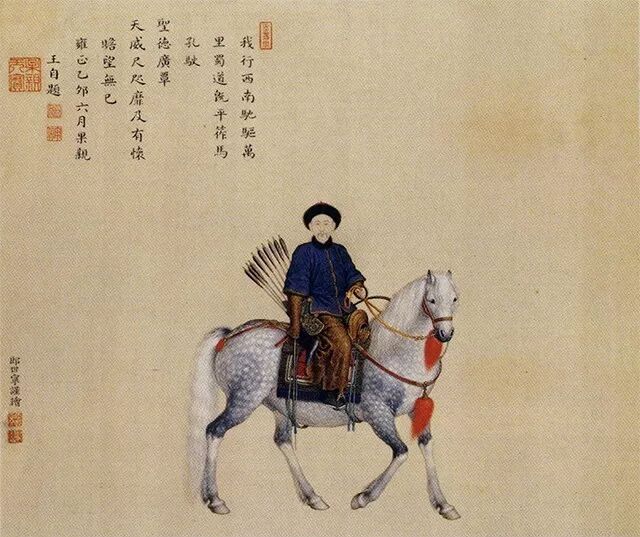 我行西南馳驅萬
里蜀道既平筰馬
孔駛
聖德廣覃
天威尺咫靡及有懷
瞻望無已
雍正乙卯六月果親
王自題
郎世寧謹繪